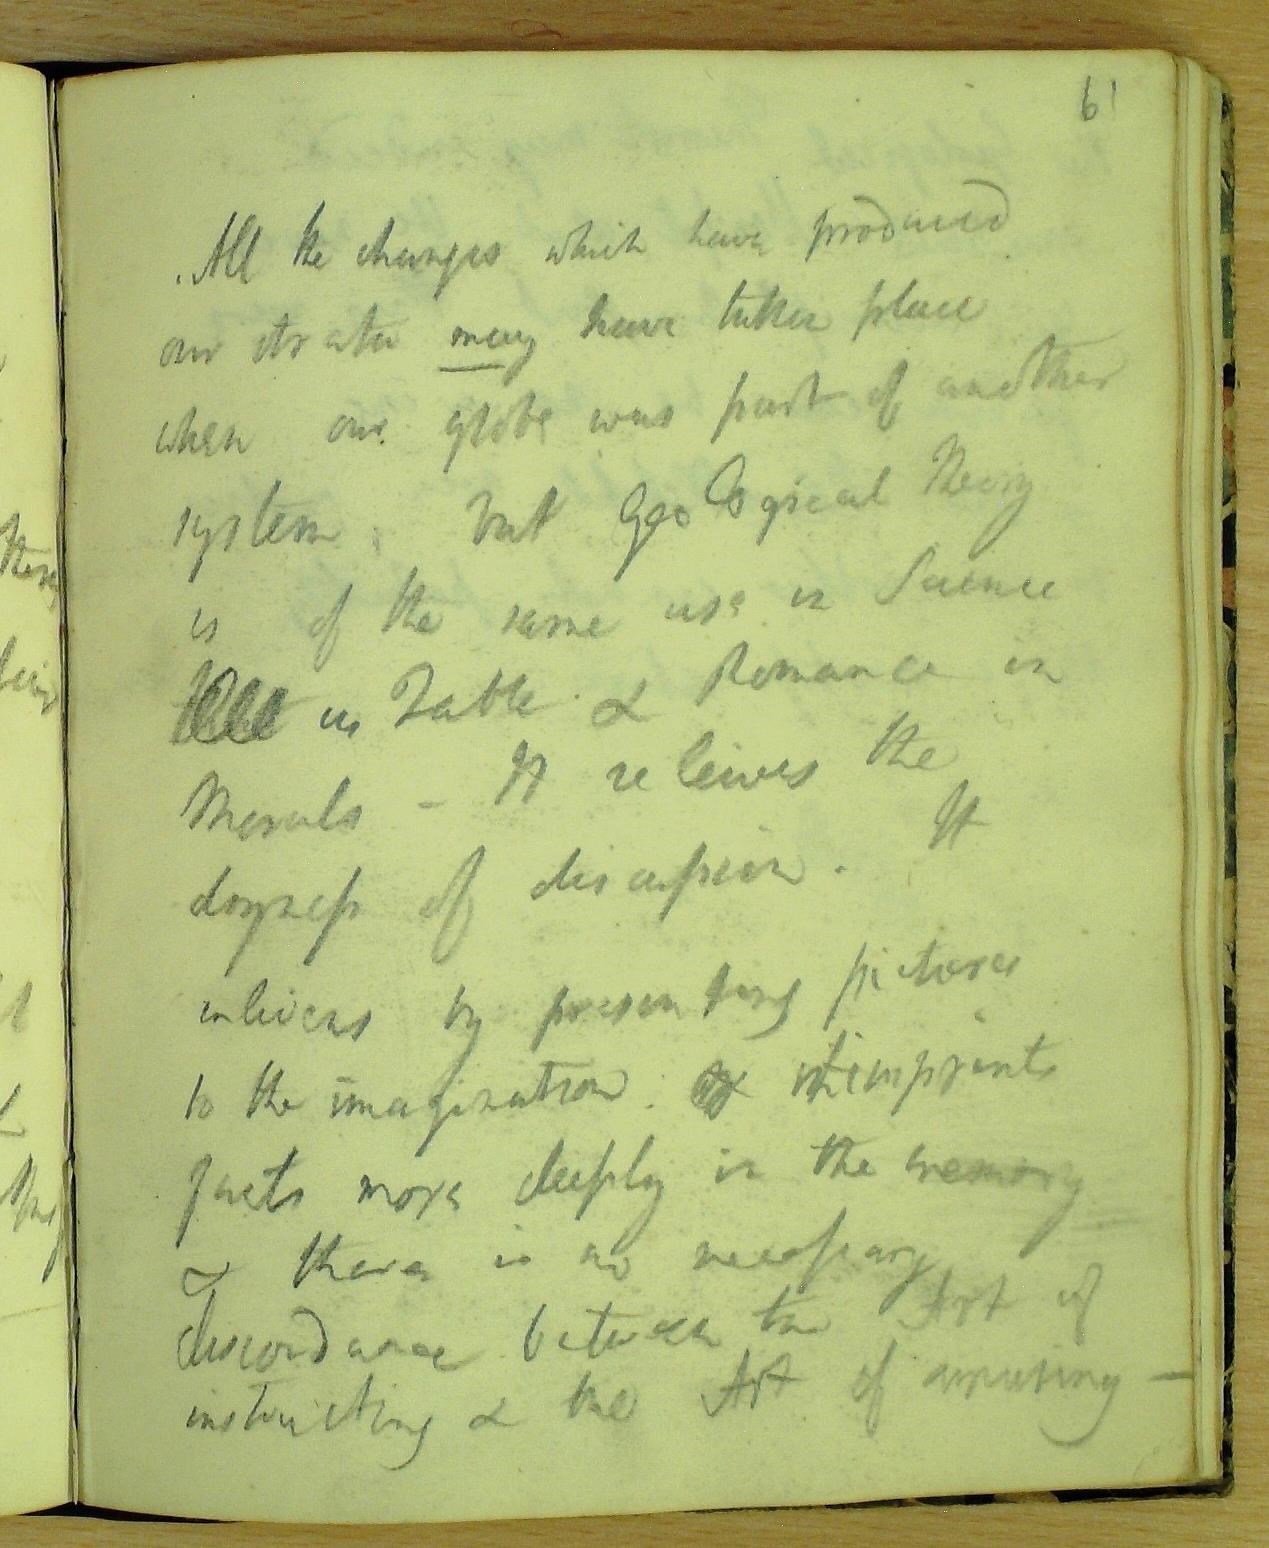 61
All the changes which have produced
our strata may have taken place
when our globe was part of another
system; but Geological Theory
is of the same use in Science
as Fable & Romance in
Morals - It relieves the
dryness of discussion. It
inlivens by presenting pictures
to the imagination. & it imprints
facts more deeply in the memory
& there is no necessary
discordance between the Art of
instructing & the Art of amusing -